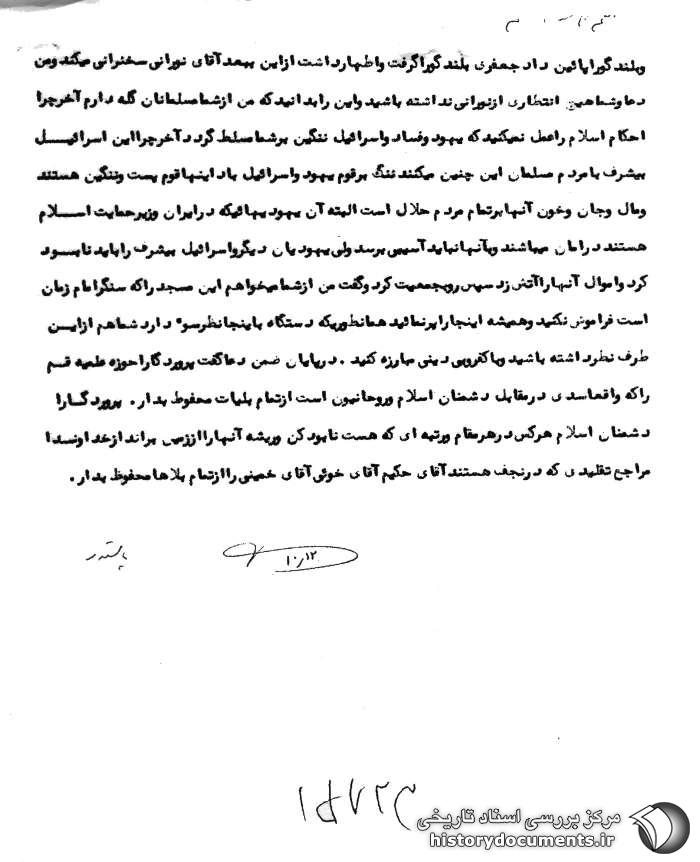 وبلند گورا پائین داد جعفری بلند گورا گرفت واظهارداشت ازاین ببعد آقای نورانی سخنرانی میکند ومن
دعا وشما هیچ انتظاری ازنورانی نداشته باشید واین رابدانید که من ازشما مسلمانان گله دارم آخرچرا
احکام اسلام راعمل نمیکنید که یهود وفساد واسرائیل ننگین برشما مسلط گردد آخرچرا این اسرائیل
بیشرف با مردم مسلمان این چنین میکنند ننگ برقوم یهود واسرائیل باد اینها قوم پست وننگین هستند
ومال وجان وخون آنها برتمام مردم حلال است البته آن یهودیهائیکه درایران وزیرحمایت اسلام
هستند درامان میباشند وبآنها نباید آسیبی برسد ولی یهودیان دیگر واسرائیل بیشرف را باید نابود
کرد واموال آنهارا آتش زد سپس روبجمعیت کرد وگفت من ازشما میخواهم این مسجد راکه سنگرامام زمان
است فراموش نکنید وهمیشه اینجارا پرنمائید همانطوریکه دستگاه باینجا نظرسوء دارد شما هم ازاین
طرف نظرداشته باشید وباکفروبی دینی مبارزه کنید . درپایان ضمن دعا گفت پروردگارا حوزه علمیه قم
راکه واقعا سدی درمقابل دشمنان اسلام وروحانیون است ازتمام بلیات محفوظ بدار . پروردگارا
دشمنان اسلام هرکس درهرمقام ورتبه ای که هست نابود کن وریشه آنهارا اززمین برانداز خداوندا
مراجع تقلیدی که درنجف هستند آقای حکیم آقای خوئی آقای خمینی را ازتمام بلاها محفوظ بدار .
۱۰٫۱۲
مرکز بررسی اسناد تاریخی
historydocuments.ir